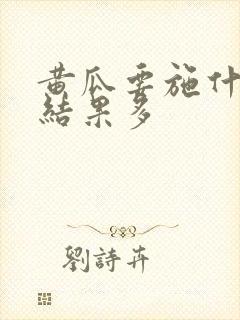 黄瓜要施什
結果多
劉詩卉